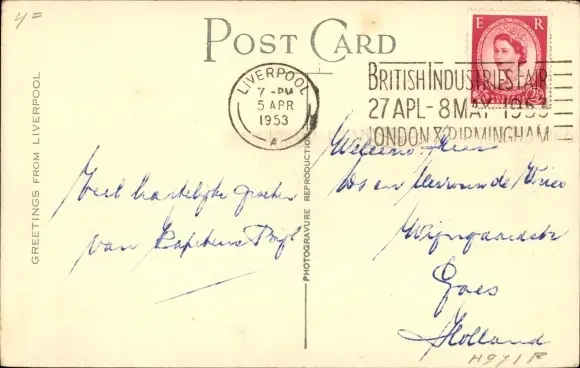 4=
POST CARD
E R
LIVERPOOL
7 - PM
5 APR
1953
A
BRITISH INDUSTRIES FAIR
27 APL - 8 MAY 1953
LONDON & BIRMINGHAM
GREETINGS FROM LIVERPOOL
PHOTOGRAVURE REPRODUCTION
Veel hartelijke groeten
van Kapitein Bijl
Weleerw. Heer
Ds en Mevrouw de Vries
Wijngaardstr
Goes
Holland
H971F